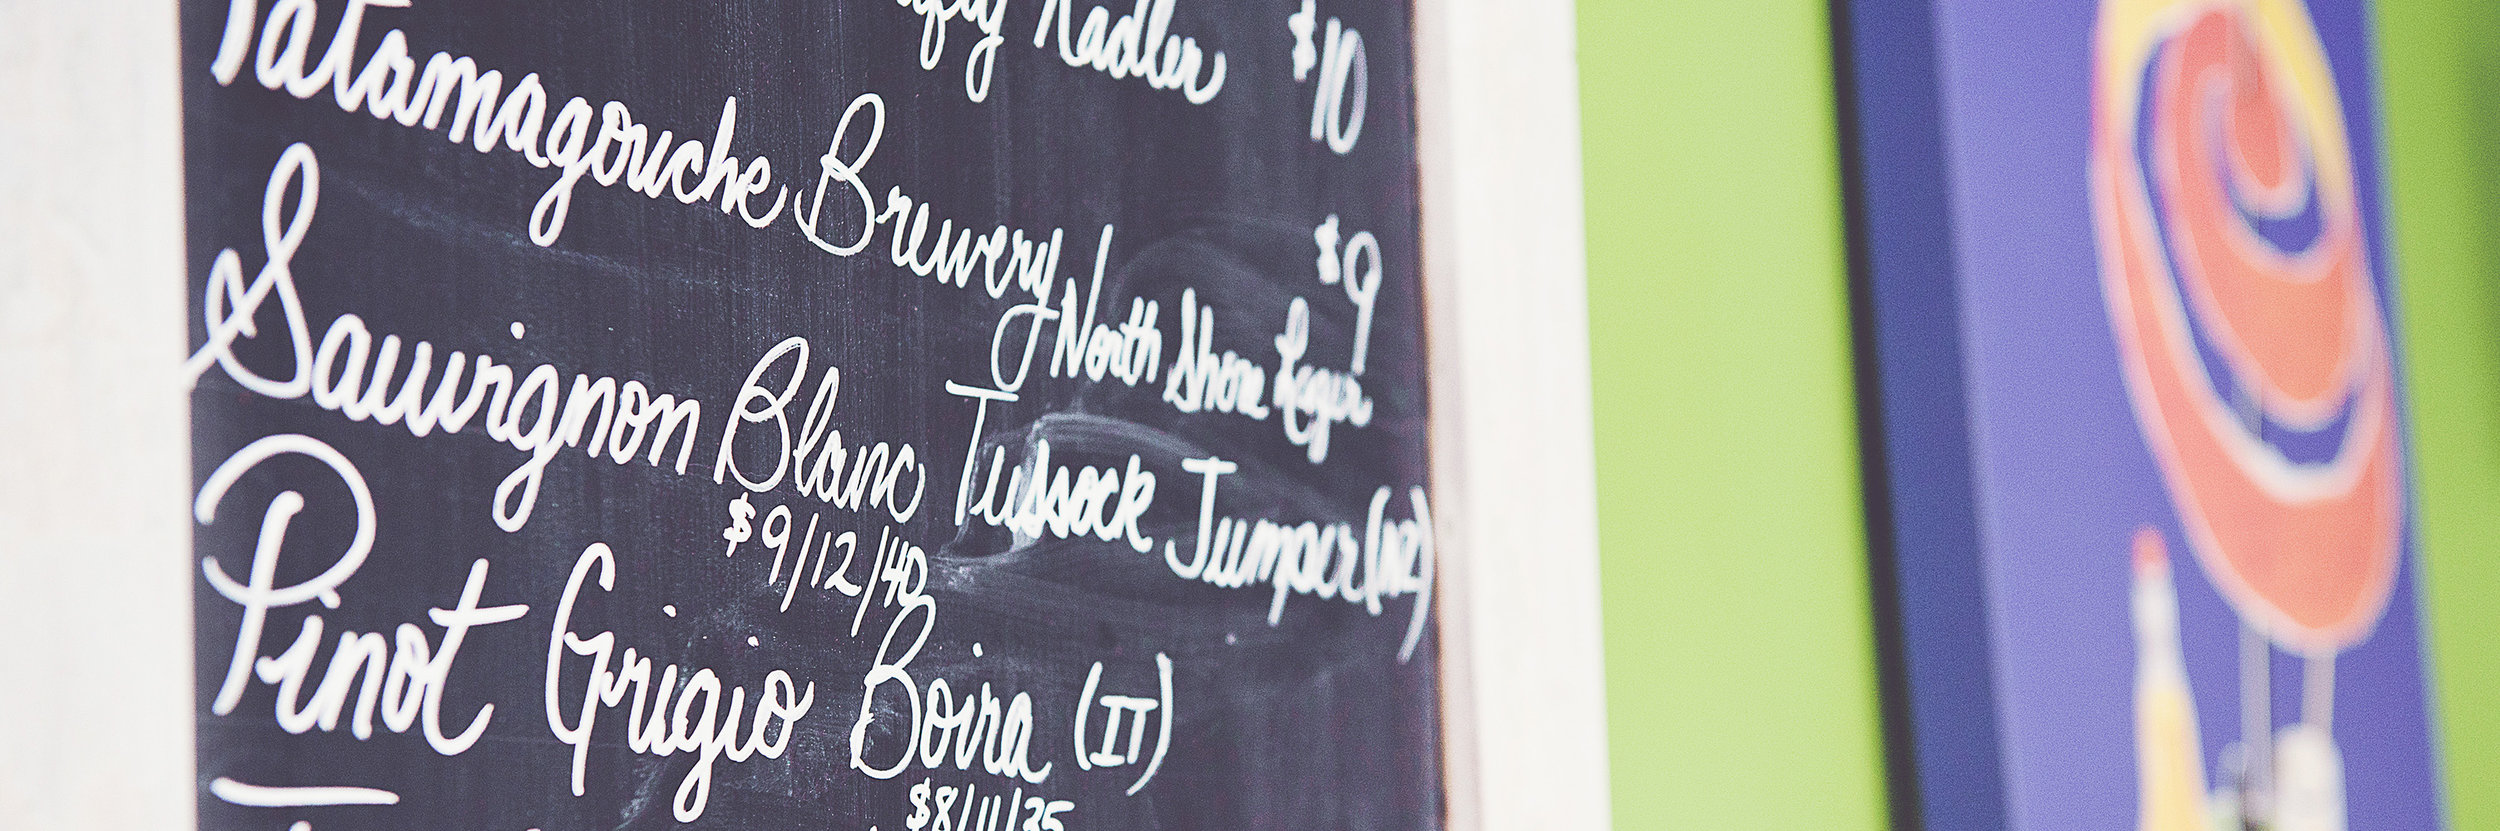 Radler $10
Tatamagouche Brewery North Shore Lager $9
Sauvignon Blanc Tussock Jumper (NZ)
$9/12/40
Pinot Grigio Boira (IT)
$8/11/35